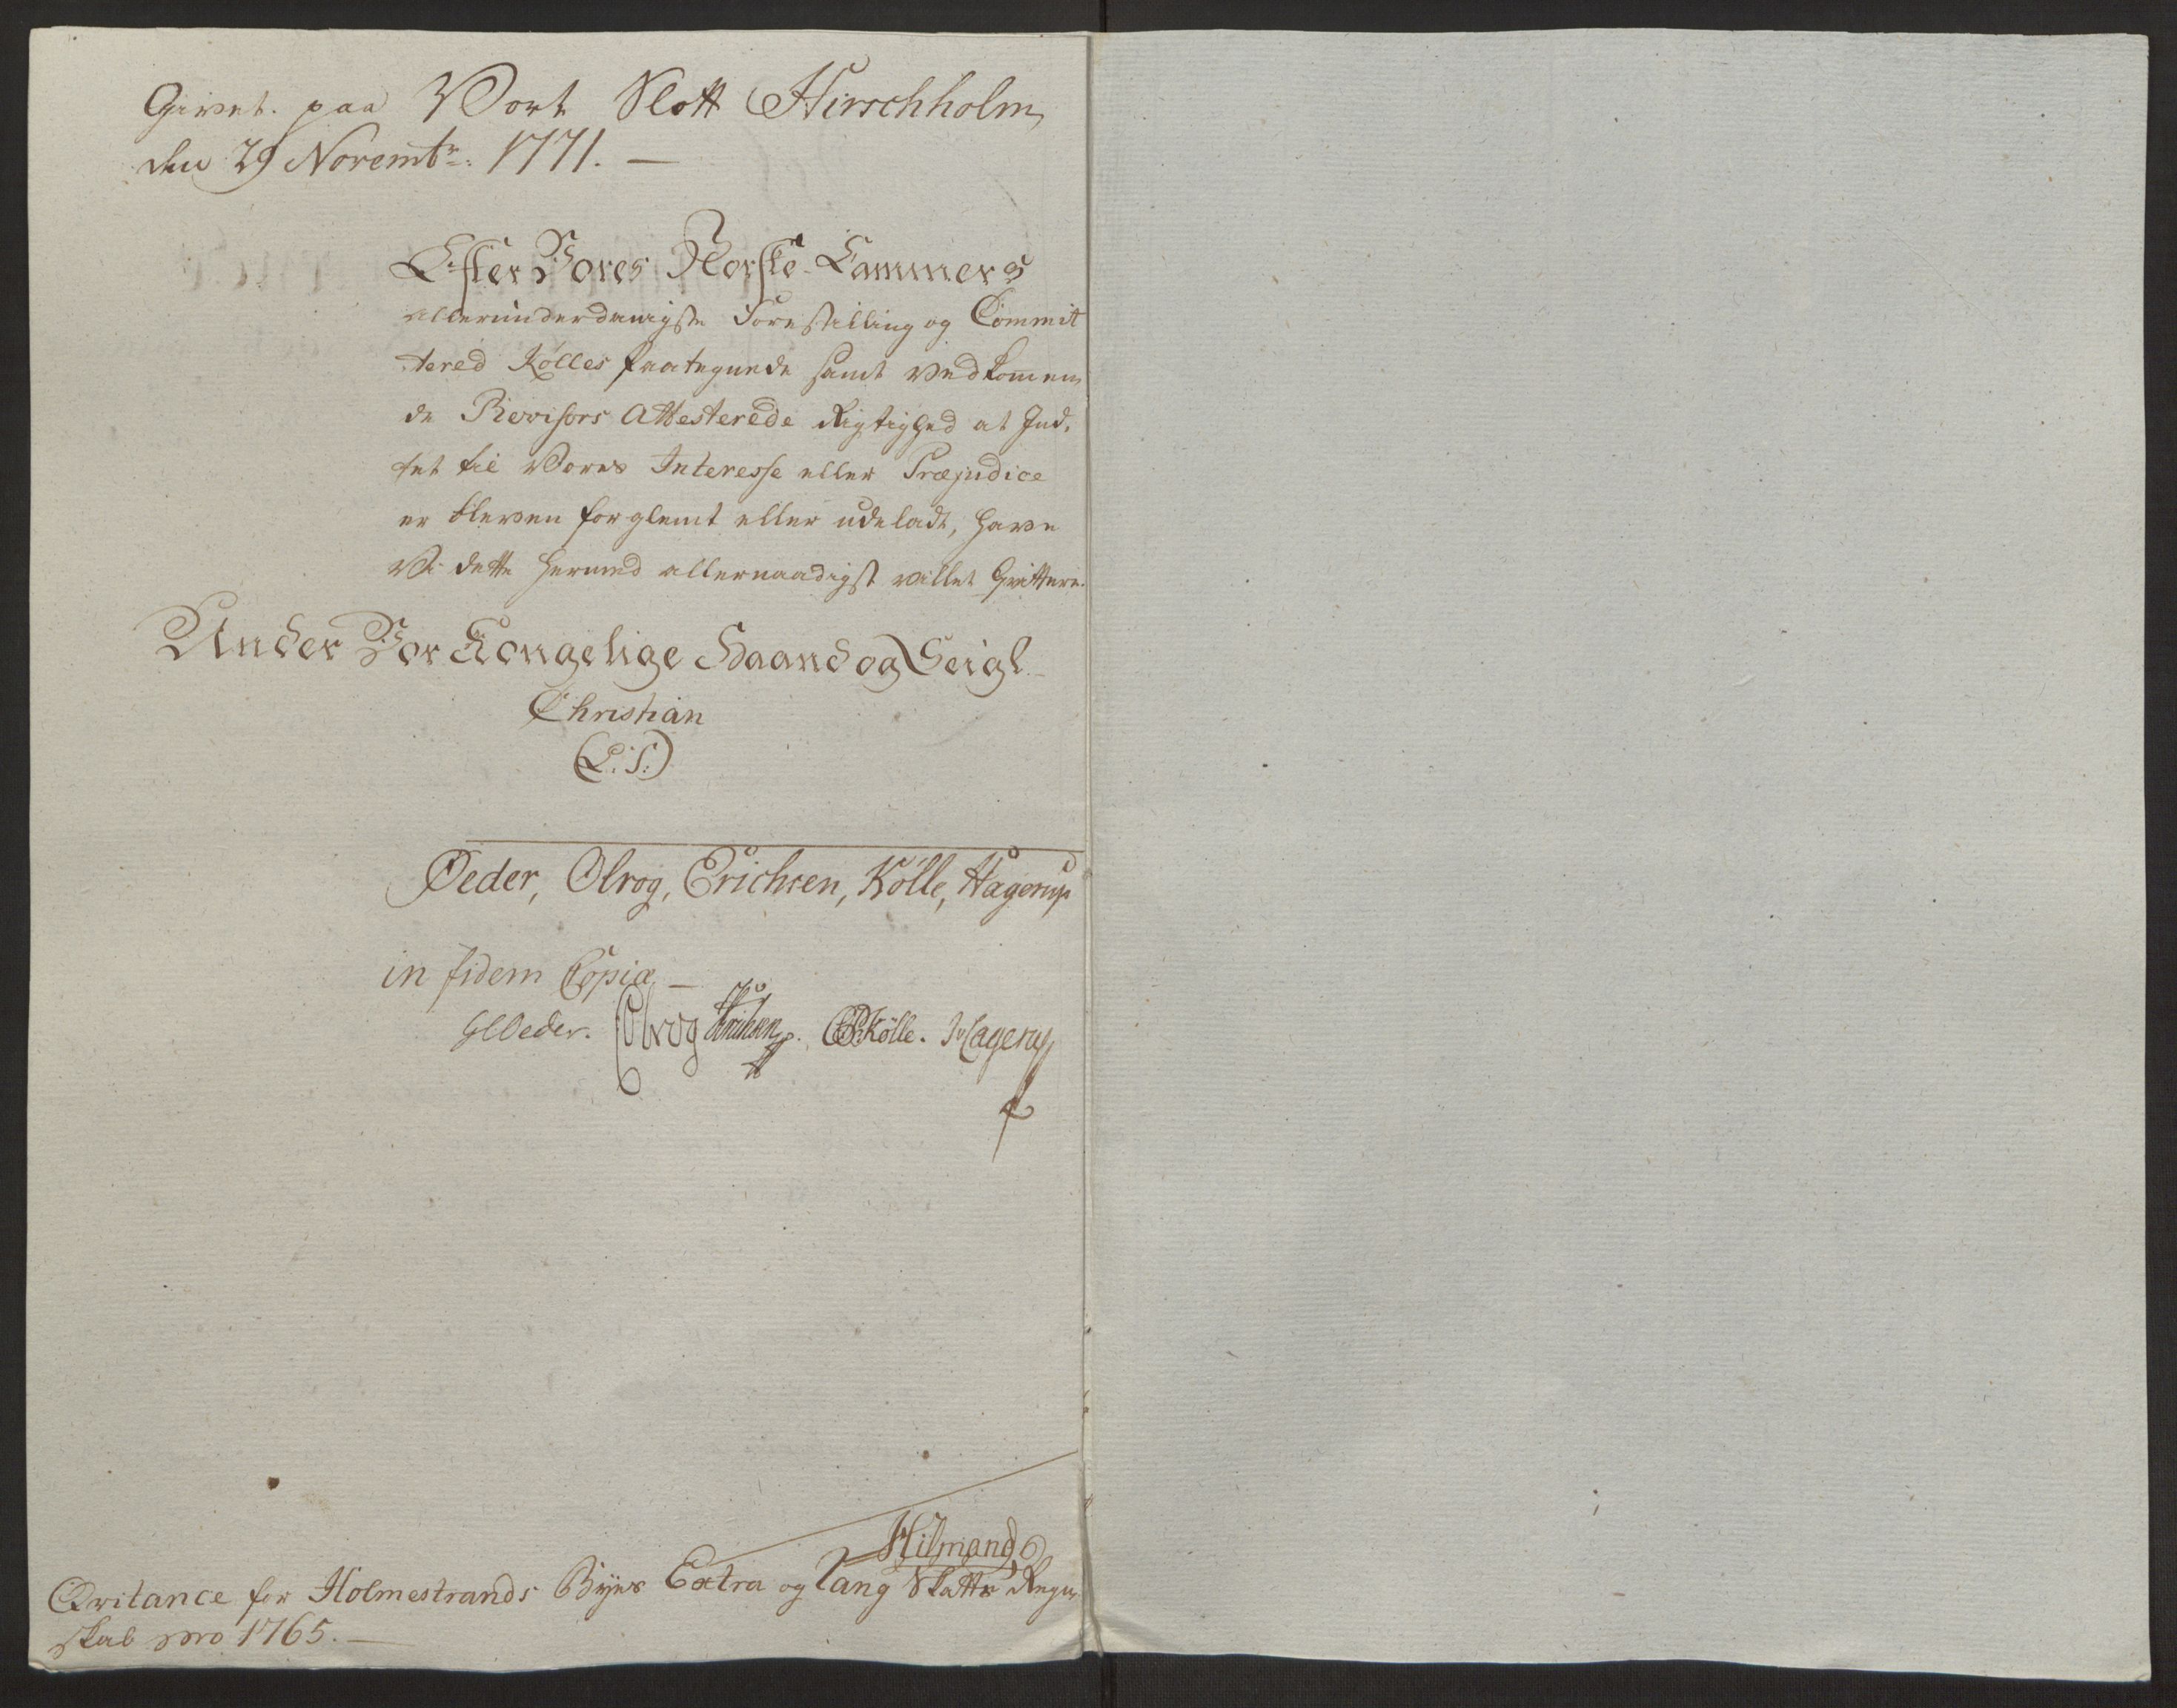 Givet paa Vort Slott Hirschholm,
den 29 Novembr: 1771. —
Efter Vores Norske-Cammers
allerunderdanigste Forestilling og Commit
tered Kølles paategnede samt vedkommen
de Revisors Attesterede Rigtighed at Ind-
tet til Vores Interesse eller Præjudice
er bleven forglemt eller udeladt, have
Vi dette hermed allernaadigst villet Qvittere.
Under Vor Kongelige Haand og Seigl
Christian
(L: S:)
Oeder, Olrog, Erichsen, Kølle, Hagerup
in fidem Copiæ —
Oeder. Olrog Erichsen. Kölle. Hagerup
Hilmand
Qvitance for Holmestrands Byes Extra og Tang Skatte Regn
skab pro 1765. —